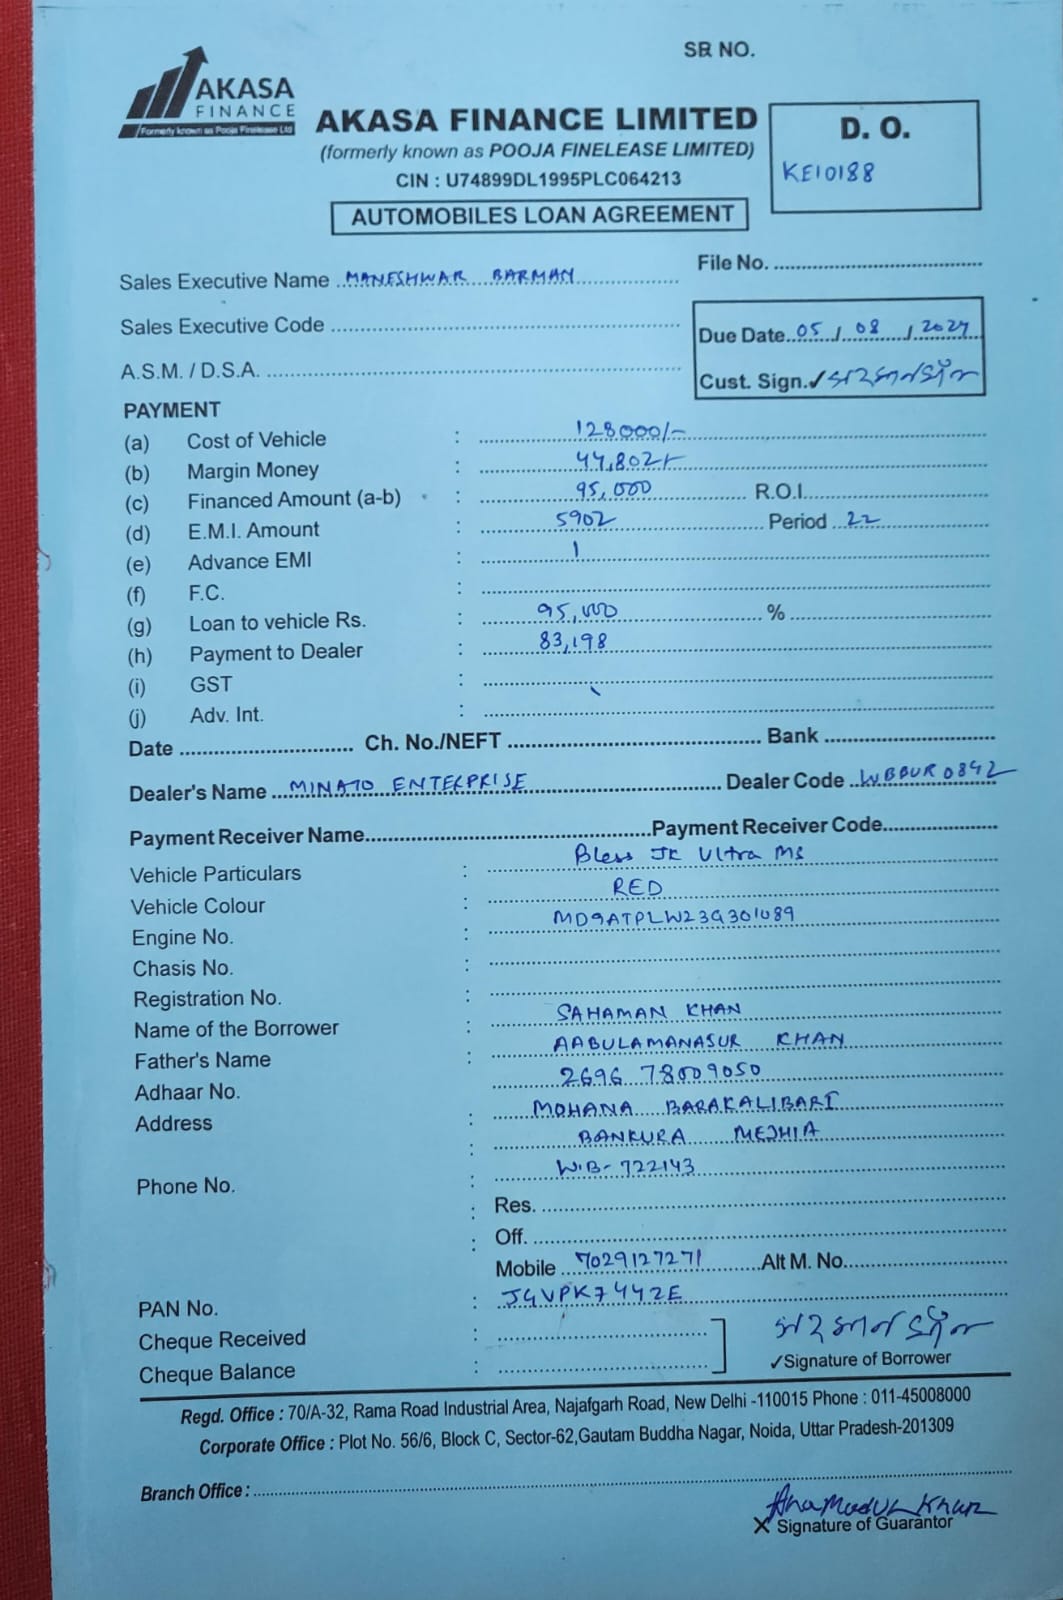 SR NO.
AKASA
FINANCE
Formerly known as Pooja Finelease Ltd
AKASA FINANCE LIMITED
(formerly known as POOJA FINELEASE LIMITED)
CIN : U74899DL1995PLC064213
AUTOMOBILES LOAN AGREEMENT
D. O.
KE10188
File No. ....................
Sales Executive Name ..MANESHWAR BARMAN....................
Sales Executive Code ....................
A.S.M. / D.S.A. ....................
Due Date..05 / 08 / 2024
Cust. Sign.✓
PAYMENT
(a) Cost of Vehicle : 128000/-
(b) Margin Money : 44,802/-
(c) Financed Amount (a-b) : 95,000 R.O.I....................
(d) E.M.I. Amount : 5902 Period ..22
(e) Advance EMI : 1
(f) F.C. : ....................
(g) Loan to vehicle Rs. : 95,000 % ....................
(h) Payment to Dealer : 83,198
(i) GST : ....................
(j) Adv. Int. : ....................
Date .................... Ch. No./NEFT .................... Bank ....................
Dealer's Name ...MINATO ENTERPRISE.................... Dealer Code ..WBBUR0842
Payment Receiver Name....................Payment Receiver Code....................
Vehicle Particulars : Bless JK Ultra MS
Vehicle Colour : RED
Engine No. : MD9ATPLW23G301089
Chasis No. : ....................
Registration No. : ....................
Name of the Borrower : SAHAMAN KHAN
Father's Name : AABULAMANASUR KHAN
Adhaar No. : 2696 78009050
Address : MOHANA BARAKALIBARI
: BANKURA MEJHIA
: W.B- 722143
Phone No.
: Res. ....................
: Off. ....................
Mobile ..7029127271....................Alt M. No....................
PAN No. : JGVPK7442E
Cheque Received : ....................
Cheque Balance : ....................
✓Signature of Borrower
Regd. Office : 70/A-32, Rama Road Industrial Area, Najafgarh Road, New Delhi -110015 Phone : 011-45008000
Corporate Office : Plot No. 56/6, Block C, Sector-62,Gautam Buddha Nagar, Noida, Uttar Pradesh-201309
Branch Office : ....................
Khan
X Signature of Guarantor